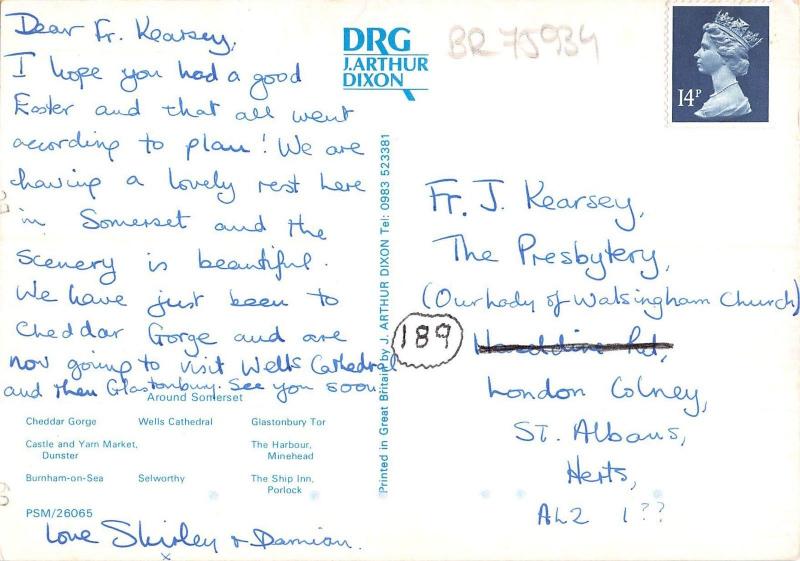 Dear Fr. Kearsey,
I hope you had a good
Easter and that all went
according to plan! We are
having a lovely rest here
in Somerset and the
scenery is beautiful.
We have just been to
Cheddar Gorge and are
now going to visit Wells Cathedral
and then Glastonbury. See you soon.
Around Somerset
Cheddar Gorge Wells Cathedral Glastonbury Tor
Castle and Yarn Market, Dunster
The Harbour, Minehead
Burnham-on-Sea Selworthy The Ship Inn, Porlock
PSM/26065
Love Shirley + Damian.
x
DRG
J.ARTHUR
DIXON
BR75934
14P
Printed in Great Britain by J. ARTHUR DIXON Tel: 0983 523381
Fr. J. Kearsey,
The Presbytery,
(Our Lady of Walsingham Church)
189
Rd,
London Colney,
ST. Albans,
Herts,
AL2 1??